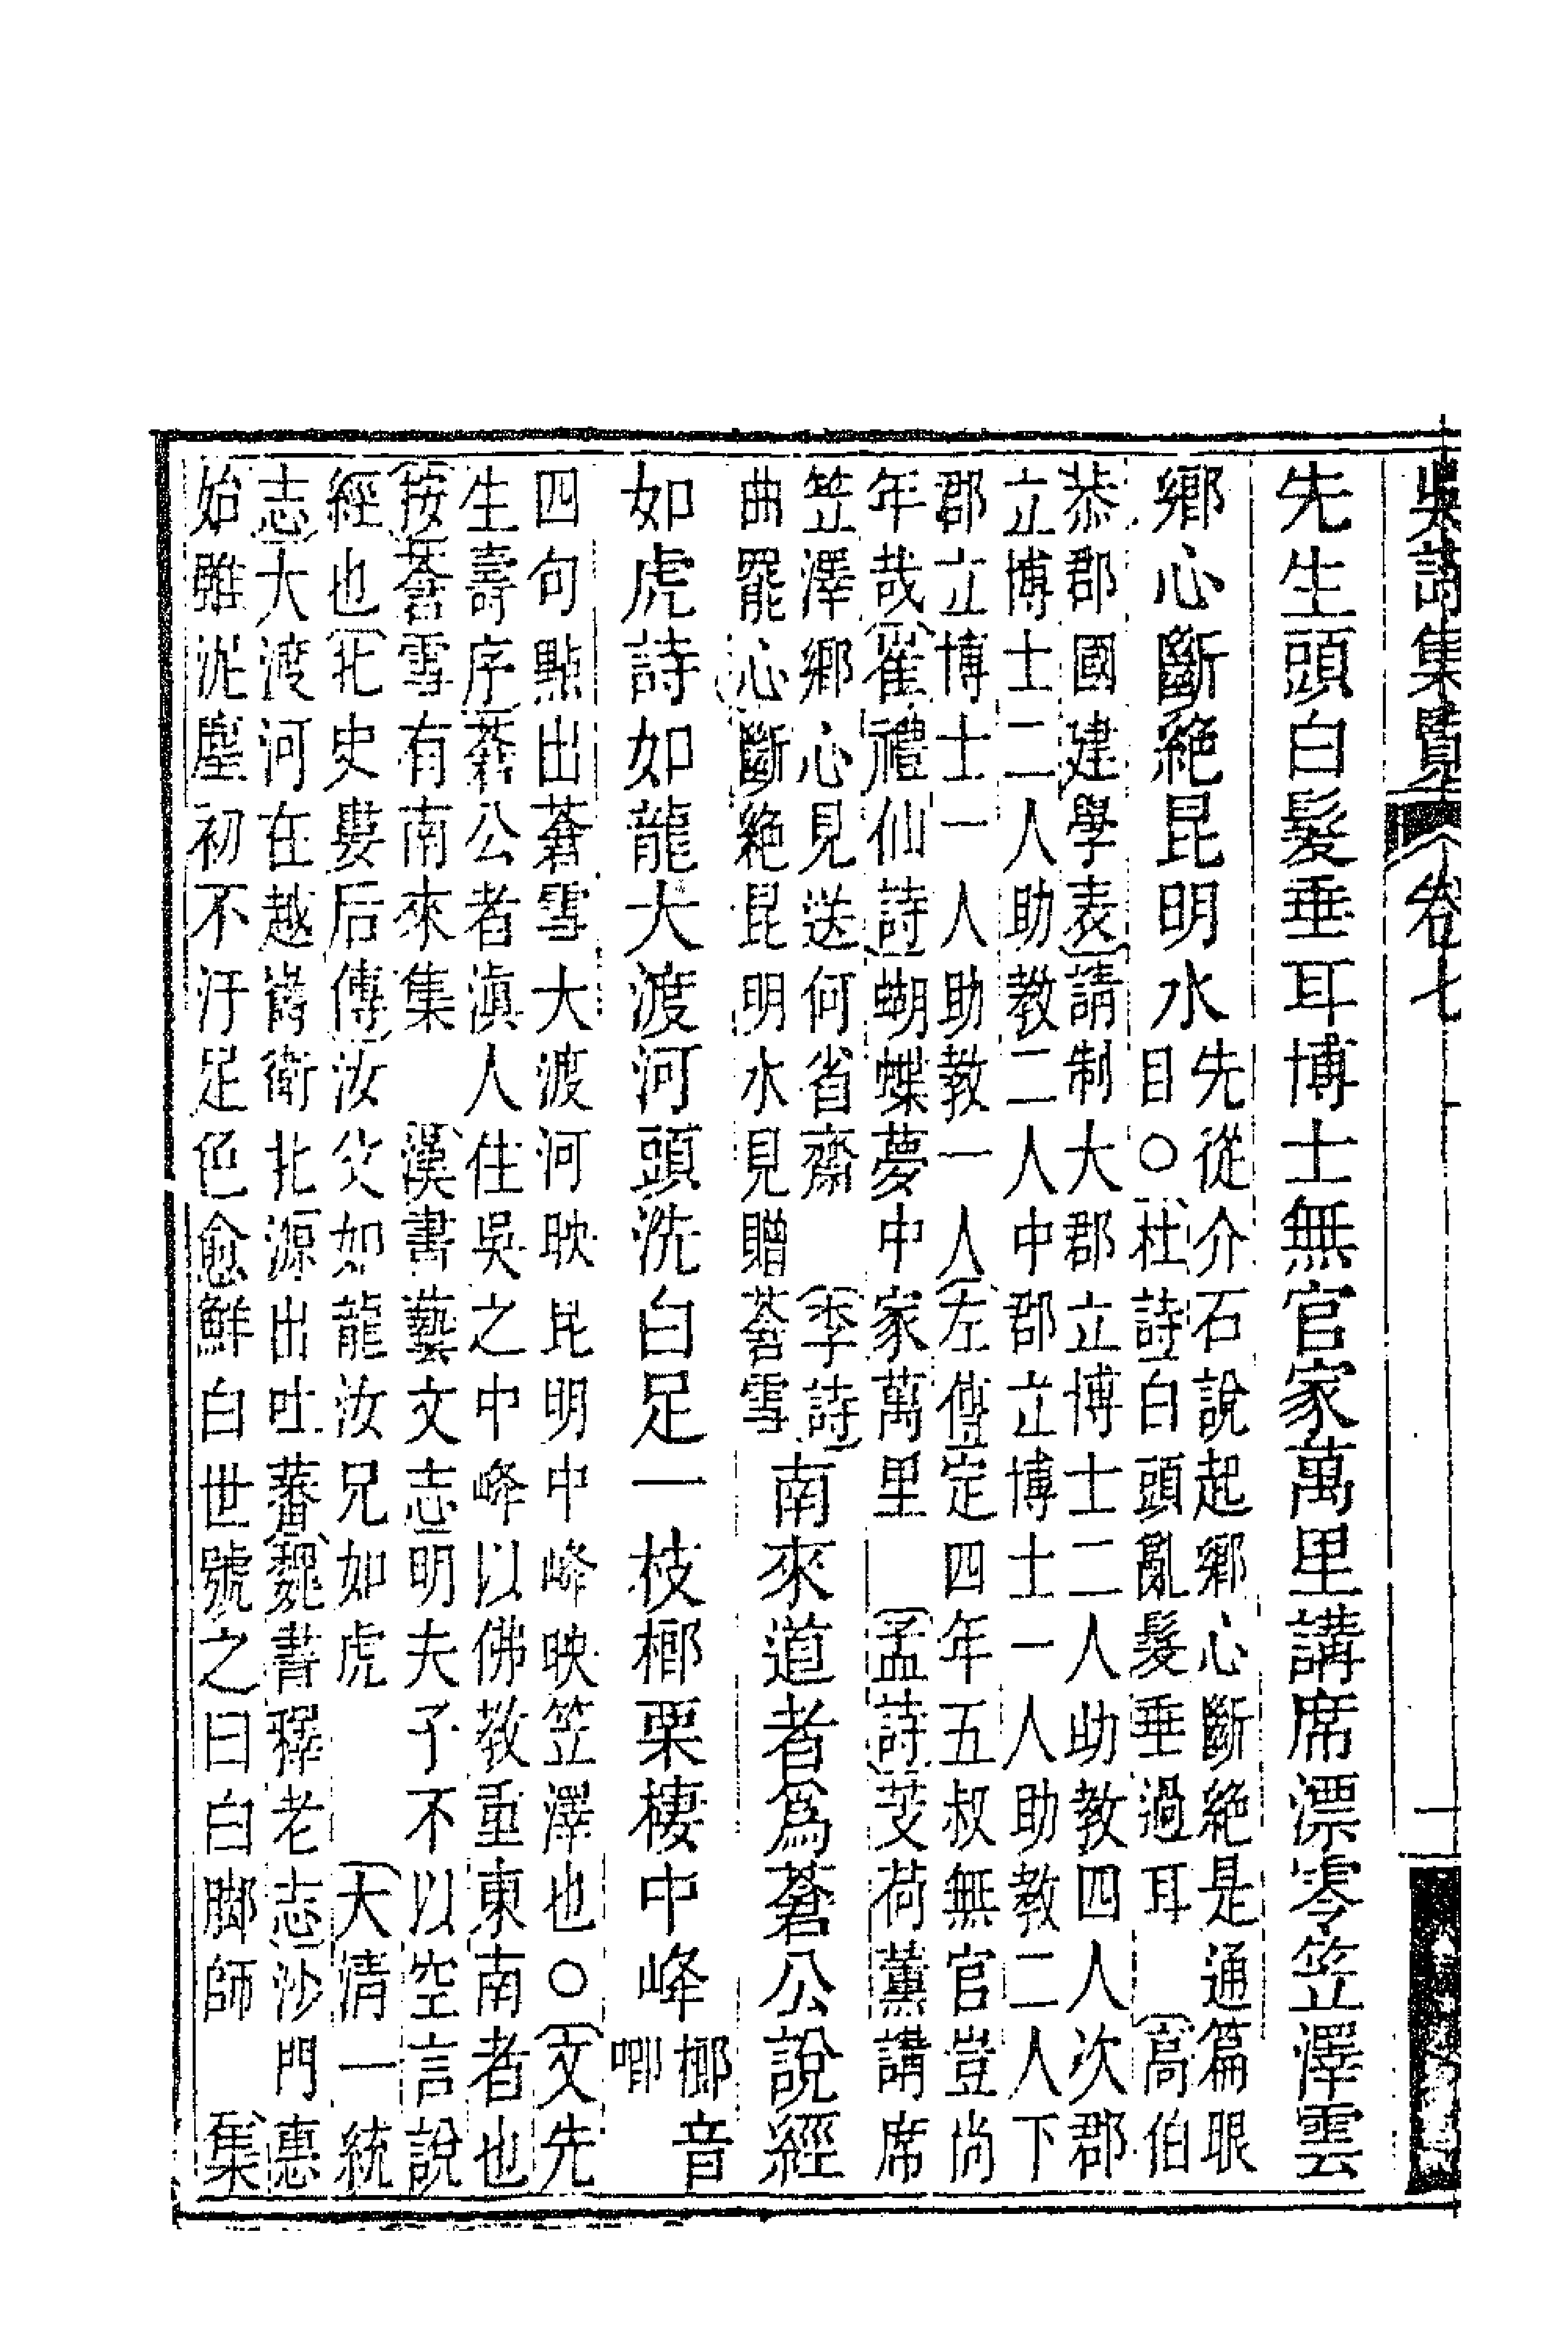 吳詩集覽 卷七 二
先生頭白髮垂耳博士無官家萬里講席漂零笠澤雲
鄉心斷絕昆明水
先從介石說起鄉心斷絕是通篇眼
目○杜詩白頭亂髮垂過耳 高伯
恭郡國建學表請制大郡立博士二人助教四人次郡
立博士二人助教二人中郡立博士一人助教二人下
郡立博士一人助教一人左傳定四年五叔無官豈尚
年哉崔禮仙詩蝴蝶夢中家萬里 孟詩芰荷薰講席
笠澤鄉心見送何省齋 季詩
曲罷心斷絕昆明水見贈蒼雪
南來道者爲蒼公說經
如虎詩如龍大渡河頭洗白足一枝楖栗棲中峰
楖音
唧
四句點出蒼雪大渡河映昆明中峰映笠澤也○文先
生壽序蒼公者滇人住吳之中峰以佛教重東南者也
按蒼雪有南來集 漢書藝文志明夫子不以空言說
經也北史婁后傳汝父如龍汝兄如虎 大清一統
志大渡河在越嶲衛北源出吐蕃魏書釋老志沙門惠
始雖泥塵初不汙足色愈鮮白世號之曰白脚師 集